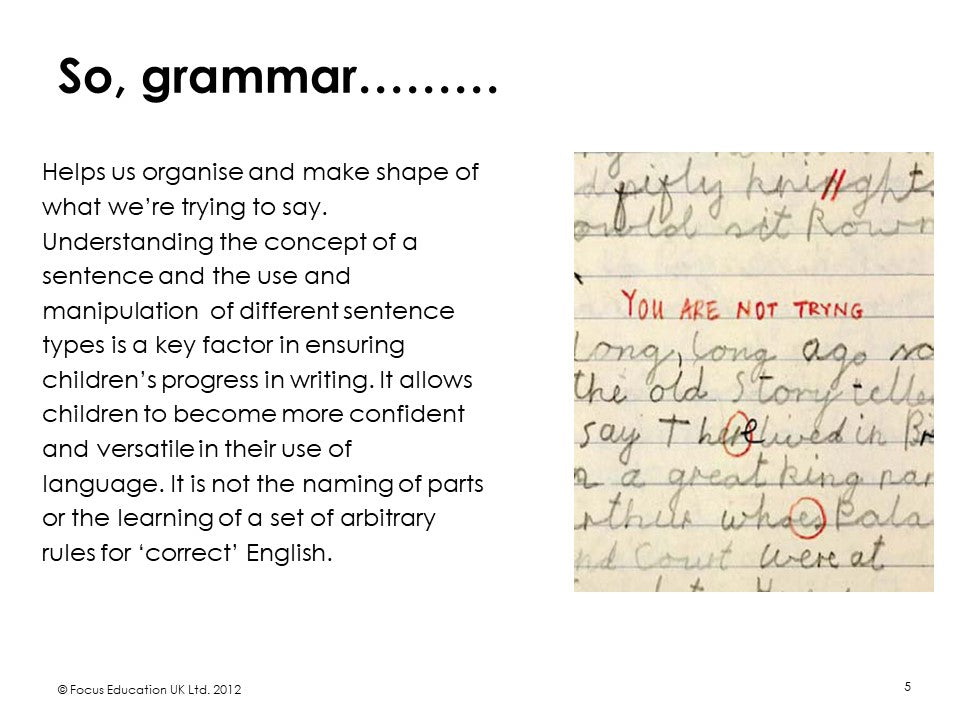 So, grammar………
Helps us organise and make shape of
what we're trying to say.
Understanding the concept of a
sentence and the use and
manipulation of different sentence
types is a key factor in ensuring
children's progress in writing. It allows
children to become more confident
and versatile in their use of
language. It is not the naming of parts
or the learning of a set of arbitrary
rules for 'correct' English.
YOU ARE NOT TRYNG
long, long ago so
the old Story telle
say There lived in Br
a great king nam
rthur whoes Pala
nd Court were at
© Focus Education UK Ltd. 2012
5